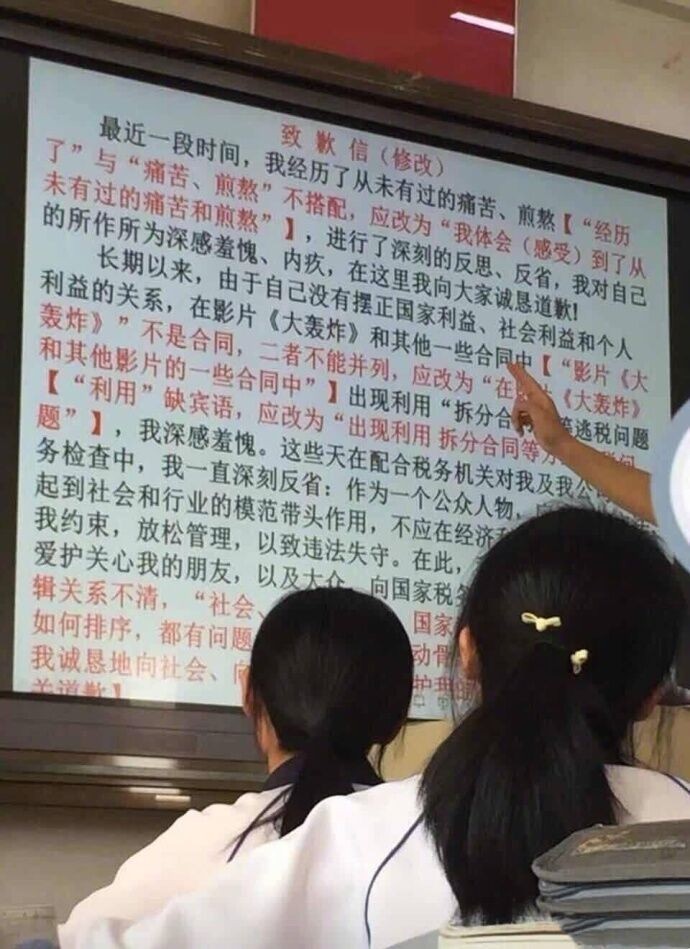 致歉信（修改）
最近一段时间，我经历了从未有过的痛苦、煎熬【“经历
了”与“痛苦、煎熬”不搭配，应改为“我体会（感受）到了从
未有过的痛苦和煎熬”】，进行了深刻的反思、反省，我对自己
的所作所为深感羞愧、内疚，在这里我向大家诚恳道歉!
长期以来，由于自己没有摆正国家利益、社会利益和个人
利益的关系，在影片《大轰炸》和其他一些合同中【“影片《大
轰炸》”不是合同，二者不能并列，应改为“在 《大轰炸》
和其他影片的一些合同中”】出现利用“拆分合同 逃税问题
【“利用”缺宾语，应改为“出现利用 拆分合同等方
题”】，我深感羞愧。这些天在配合税务机关对我及我公
务检查中，我一直深刻反省：作为一个公众人物，
起到社会和行业的模范带头作用，不应在经济
我约束，放松管理，以致违法失守。在此，
爱护关心我的朋友，以及大众，向国家税务
辑关系不清，“社会、 国家
如何排序，都有问题 动
我诚恳地向社会、向 护我的
关道歉】